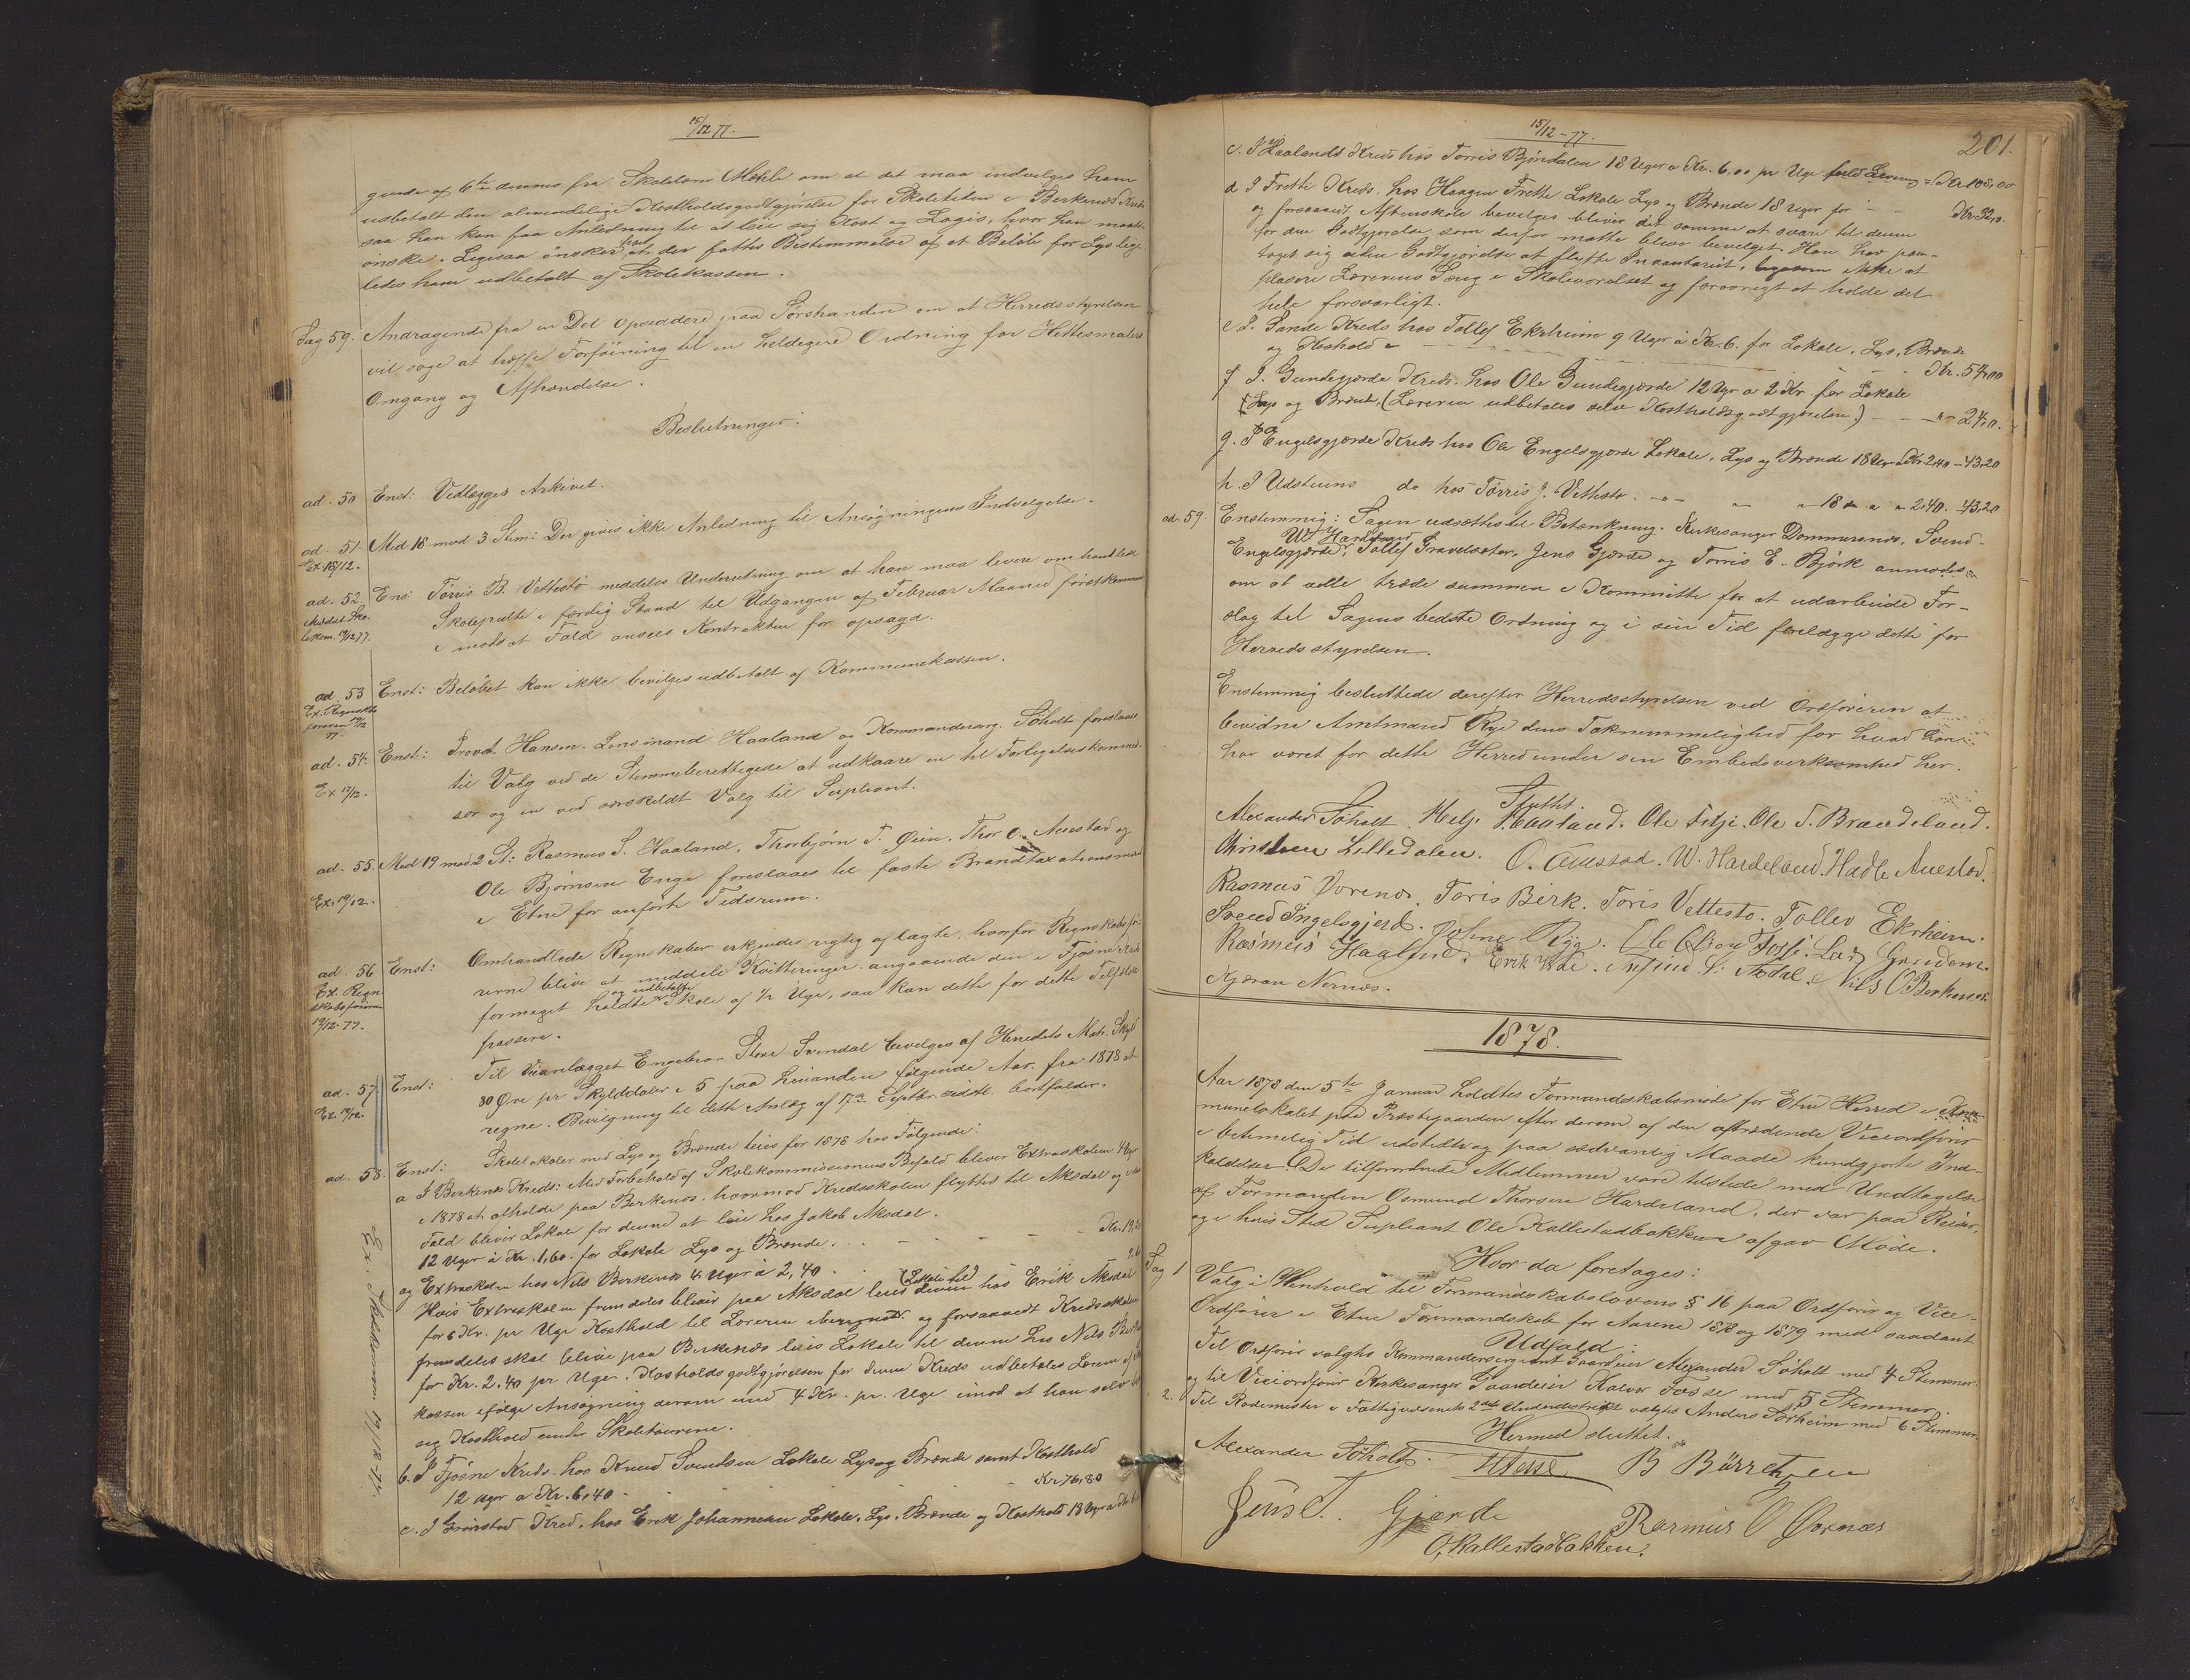 15/12 77.
gende af 6te dennes fra Skolelærer Mæhle om at det maa indvilges ham
udbetalt den almindelige Kostholdsgodtgjørelse for Skoletiden i Berkenes Kreds
saa han kan faa Anledning til at leie sig Kost og Logis, hvor han maatte
ønske. Ligesaa ønsker han at der fattes Bestemmelse af et Beløb for Lys lige-
ledes ham udbetalt af Skolekassen.
Sag 59. Andragende fra en Del Opsiddere paa Sørstranden om at Herredsstyrelsen
vil søge at træffe Forføining til en heldigere Ordning for
Omgang og Afhændelse.
Beslutninger:
ad. 50 Enst: Vedlægges Arkivet.
ad. 51. Med 18 mod 3 Stem: Der gives ikke Anledning til Ansøgningens Indvilgelse.
Ex 18/12.
ad. 52. Ens: Tørris B. Vettestø meddeles Underretning om at han maa levere omhandlede
Skolepulte i færdig Stand til Udgangen af Februar Maaned førstkommende
i modsat Fald ansees Kontrakten for opsagt.
ad. 53 Enst: Beløbet kan ikke bevilges udbetalt af Kommunekassen.
ad. 54. Enst: Provst Hansen, Lensmand Haaland og Kommanderserg. Søholt foreslaaes
til Valg ved de Stemmeberettigede at udkaare en til Forligelseskommis-
Ex 17/12.
sær og en ved særskildt Valg til Supleant.
ad. 55. Med 19 mod 2 St: Rasmus S. Haaland, Thorbjørn T. Øien, Thor O. Auestad og
Ole Bjørnsen Enge foreslaaes til faste Brandtaxationsmænd
Ex. 19/12.
i Etne for anførte Tidsrum.
ad. 56 Enst: Omhandlede Regnskaber erkjendes rigtig aflagte, hvorfor Regnskabsfø-
rerne blive at meddele Kvitteringer. angaaende den i Fjøsne Kreds
formeget holdte og udbetalte Skole af ½ Uge, saa kan dette for dette Tilfælde
passere.
19/12-77.
ad. 57. Enst: Til Veianlægget Engebro - Store Svendal bevilges af Herredets Matr. Skyld
80 Øre pr Skylddaler i 5 paa hinanden følgende Aar. fra 1878 at
Ex. 19/12.
regne. Bevilgning til dette Anlæg af 17de Septbr. sidstl. bortfalder.
ad. 58. Enst: Skolelokaler med Lys og Brænde leies for 1878 hos Følgende:
a I Berkenes Kreds: Med Forbehold af Skolekommissionens Bifald bliver Extraskolen 4 Uger
i 1878 at afholde paa Berkenes, hvormod Kredsskolen flyttes til Aksdal og i dette
Fald bliver Lokale for denne at leie hos Jakob Aksdal.
12 Uger à Kr. 1,60. for Lokale Lys og Brænde. - - - - Kr. 19,20
og Extraskolen hos Nils Berkenes 4 Uger à 2,40 9,60
Hvis Extraskolen fremdeles bliver paa Aksdal leies (Lokale til) denne hos Erik Aksdal
for 6 Kr. pr Uge Kosthold til Læreren iberegnet. og forsaavidt Kredsskolen
fremdeles skal blive paa Berkenes leies Lokale til denne hos Nils Berkenes
for Kr. 2,40 pr Uge. Kostholdsgodtgjørelsen for denne Kreds udbetales Læreren af
kassen ifølge Ansøgning derom med 4 Kr. pr. Uge imod at han selv
seg Kosthold under Skoleturene.
b. I Fjøsne Kreds. hos Knud Svendsen Lokale Lys og Brænde samt Kosthold
12 Uger a Kr. 6,40 - Kr 76,80
c. I Grønstad Kred. hos Erik Johannesen Lokale, Lys, Brænde og Kosthold 18 Uger a
Ex. Skolekom. 17/12 77.
15/12-77.
201.
c. I Haalands Kreds hos Tørris Bjørndalen 18 Uger a Kr. 6,00 pr Uge = Kr 108,00
d I Frette Kreds. hos Haagen Frette Lokale Lys og Brænde 18 Uger for - - Kr.
og forsaavidt Aftenskole bevilges bliver det samme at svare til denne
for den Godtgjørelse som derfor maatte blive bevilget. Han har paa-
taget sig uden Godtgjørelse at flytte Inventariet, ikke at
plasere Lærerens Seng i Skoleværelset og forøvrigt at holde det
hele forsvarligt.
e I. Sande Kreds hos Tollef Ekrheim 9 Uger à Kr. 6. for Lokale, Lys, Brænde
og Kosthold - - - - Kr. 54,00
f I. Gundegjærde Kreds. hos Ole Gundegjerde 12 Uger a 2 Kr for Lokale
Lys og Brænde, (Læreren udbetales selv Kostholdsgodtgjørelsen) - - - 24,0.
g. I Engelsgjærde Kreds hos Ole Engelsgjerde Lokale, Lys og Brænde 18 Uger à Kr 2,40 - 43,20
h. I Udsteins do hos Tørris J. Vettestø. - - - - 18 - - 2,40. 43,20
ad. 59. Enstemmig: Sagen udsættes til Betænkning. Kirkesanger Dommersnes, Svend
Engelsgjerde, W. Hardeland Tollef Gravelsæter, Jens Gjerde og Tørris E. Bjørk anmodes
om at ville træde sammen i Kommitte for at udarbeide For-
slag til Sagens bedste Ordning og i sin Tid forelægge dette for
Herredsstyrelsen.
Enstemmig besluttede derefter Herredsstyrelsen ved Ordføreren at
bevidne Amtmand Rye dens Taknemmelighed for hvad han
har været for dette Herred under sin Embedsverksomhed her.
Sluttet.
Alexander Søholt. Helj. Haaland. Ole Fitje. Ole T. Brandeland.
Christen Lilledalen. O. Auestad. W. Hardeland. Hadle Auestad.
Rasmus Vorenes. Toris Birk. Toris Vettesto. Tollev Ekrheim.
Svend Ingelsgjerd. Johne Ryg. Ole Olson Fosse. Lars Grindem.
Rasmus Haaland. Erik Vde. Nils O Berkenes
Gjøran Nernes.
1878.
Aar 1878 den 5te Januar holdtes Formandskabsmøde for Etne Herred i Kom-
munelokalet paa Præstegaarden efter derom af den aftrædende Viceordfører
i betimelig Tid udstedte og paa sædvanlig Maade kundgjorte Ind-
kaldelser. De tilforordnede Medlemmer vare tilstede med Undtagelse
af Formanden Osmund Thorsen Hardeland, der var paa Reiser,
og i hvis Sted Supleant Ole Kallestadbakken afgav Møde.
Hvor da foretages:
Sag 1 Valg i Henhold til Formandskabslovens § 16 paa Ordfører og Vice-
Ordfører i Etne Formandskab for Aarene 1878 og 1879 med saadant
Udfald:
Til Ordfører valgtes Kommandersergeant Gaardeier Alexander Søholt med 4 Stemmer.
og til Viceordfører Kirkesanger Gaardeier Halvor Fosse med 5 Stemmer.
2. Til Rodemester i Fattigvæsenets 2det Underdistrikt valgtes Anders Sørheim med 6 Stemmer.
Hermed sluttet.
Alexander Søholt. HFosse B Børretzen
Jens T. Gjerde Rasmus O Vornæs
O, Kallestadbakken.